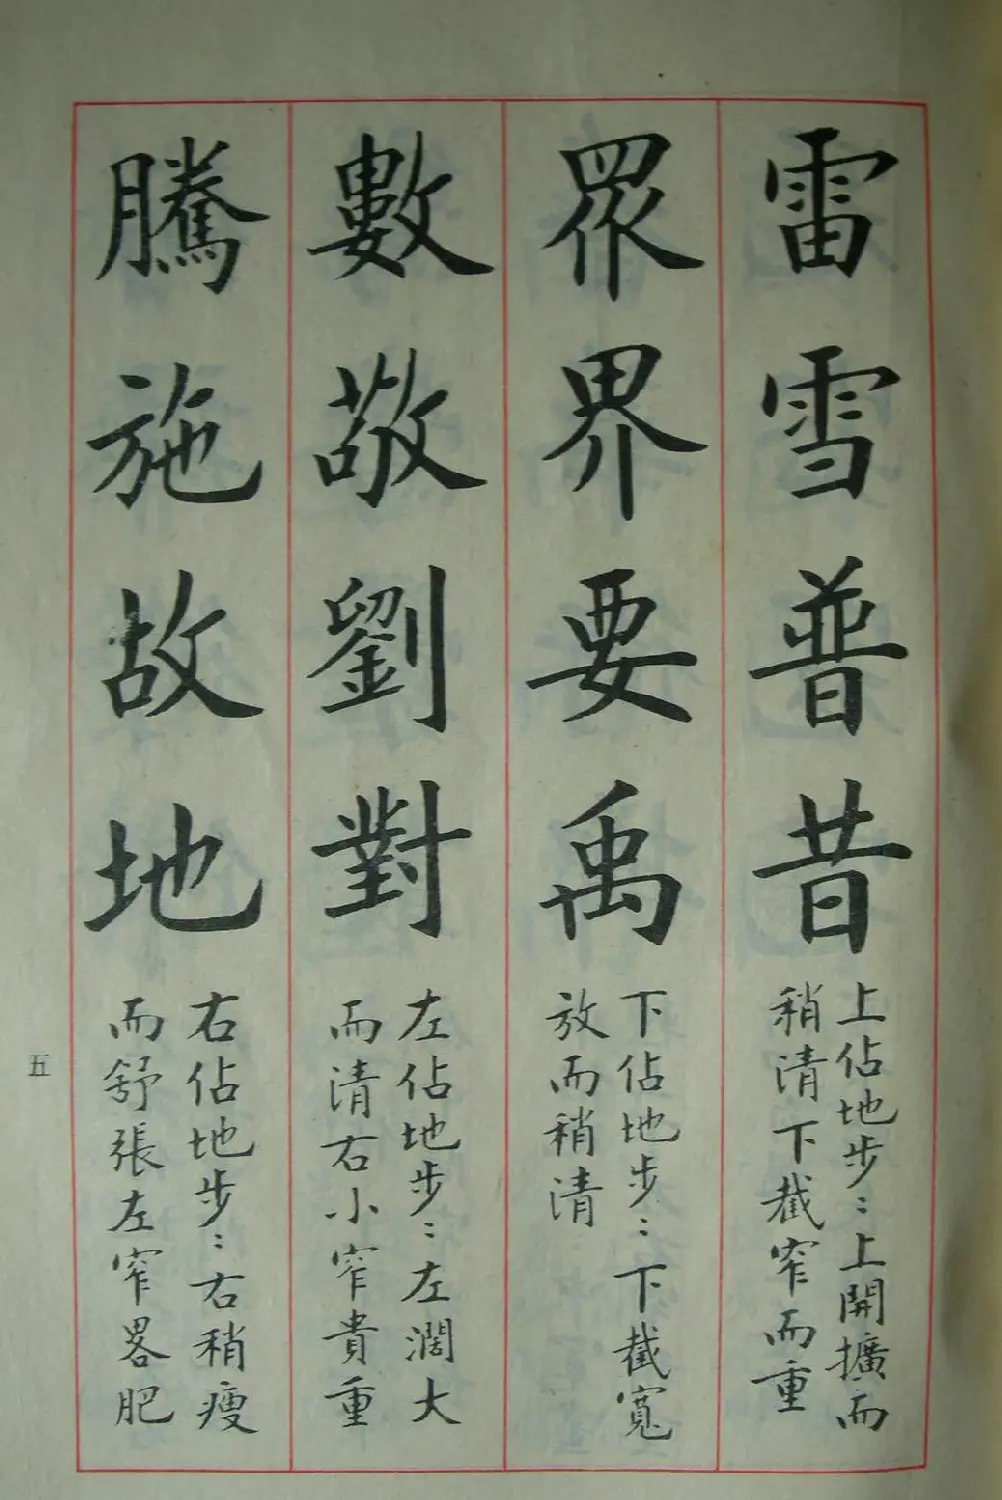 雷雪普昔
上佔地步：上開擴而
稍清下截窄而重
眾界要禹
下佔地步：下截寬
放而稍清
數敬劉對
左佔地步：左濶大
而清右小窄貴重
騰施故地
右佔地步：右稍瘦
而舒張左窄畧肥
五